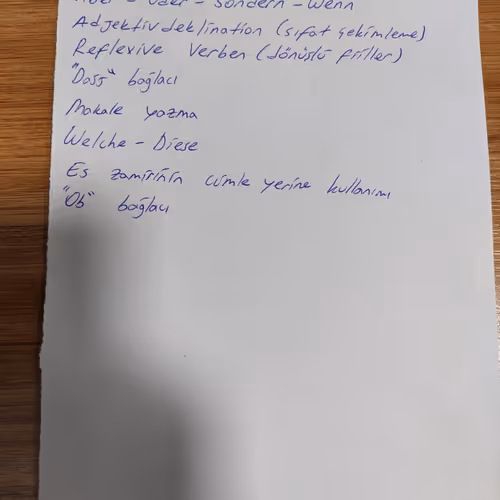 Aber - Oder - Sondern - Wenn
Adjektivdeklination (sıfat çekimleme)
Reflexive Verben (dönüşlü fiiller)
"Dass" bağlacı
Makale yazma
Welche - Diese
Es zamirinin cümle yerine kullanımı
"Ob" bağlacı